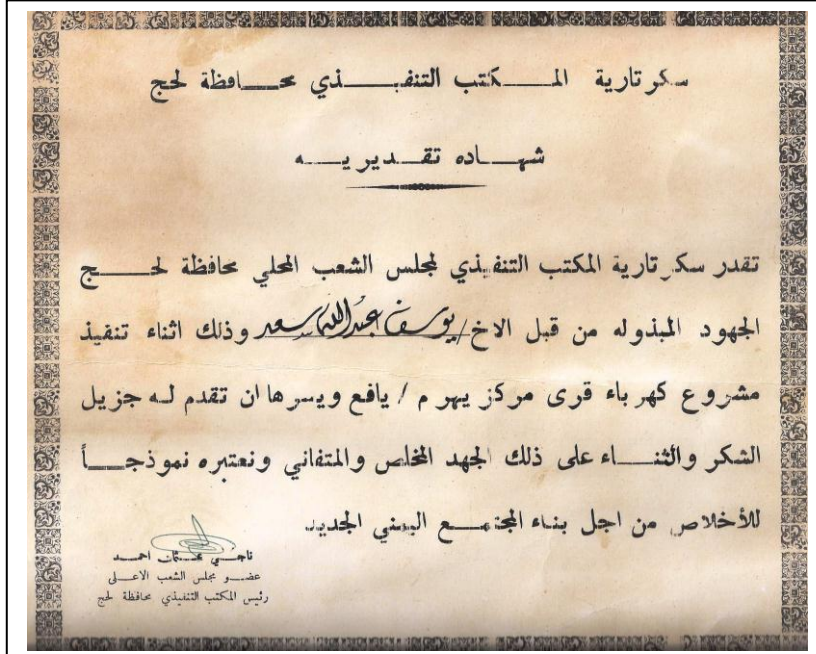 سكرتارية المكتب التنفيذي محافظة لحج
شهاده تقديريه
تقدر سكرتارية المكتب التنفيذي لمجلس الشعب المحلي محافظة لحج
الجهود المبذوله من قبل الاخ / يوسف عبدالله سعد وذلك اثناء تنفيذ
مشروع كهرباء قرى مركز يهر م / يافع ويسرها ان تقدم له جزيل
الشكر والثناء على ذلك الجهد المخلص والمتفاني ونعتبره نموذجاً
للأخلاص من اجل بناء المجتمع اليمني الجديد
ناجي عثمان احمد
عضو مجلس الشعب الاعلى
رئيس المكتب التنفيذي محافظة لحج